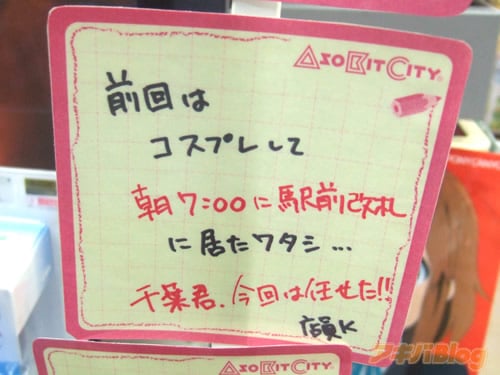 AsoBitCity
前回は
コスプレして
朝7:00に駅前改札
に居たワタシ…
千葉君、今回は任せた!!
店員K
アキバBlog
AsoBitCity